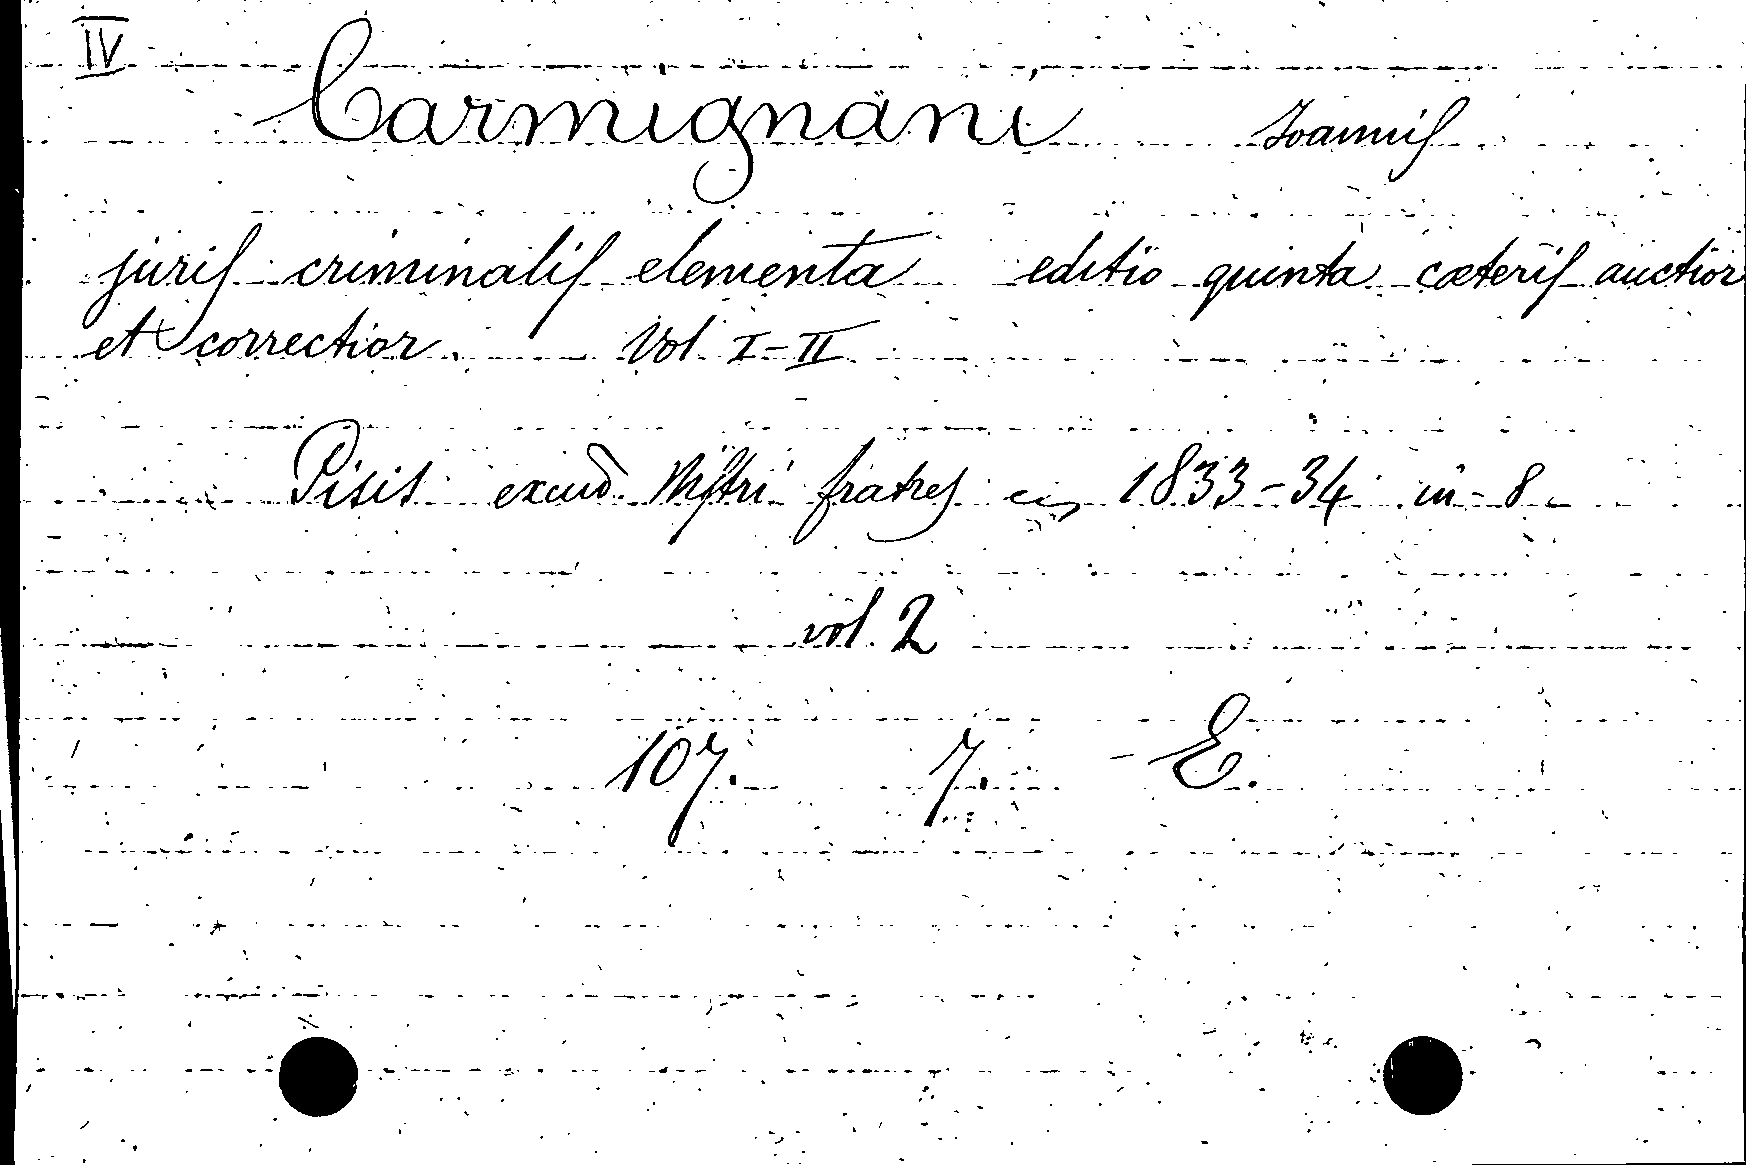 IV
Carmignani Joannis
juris criminalis elementa editio quinta cæteris auctior
et correctior. Vol I-II
Pisis excud. Nistri fratres 1833-34 in-8.
vol. 2
107. 7. - E.